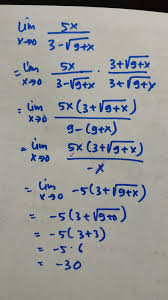 lim x→0 5x / (3-√(9+x))
= lim x→0 5x / (3-√(9+x)) · (3+√(9+x)) / (3+√(9+x))
= lim x→0 5x(3+√(9+x)) / (9-(9+x))
= lim x→0 5x(3+√(9+x)) / -x
= lim x→0 -5(3+√(9+x))
= -5(3+√(9+0))
= -5(3+3)
= -5·6
= -30